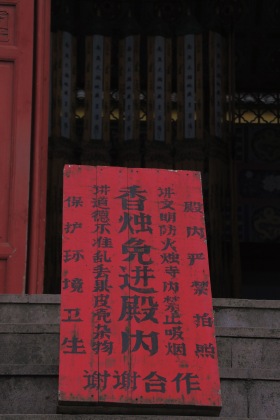 殿内严禁拍照
讲文明防火烛寺内禁止吸烟
香烛免进殿内
讲道德不准乱丢果皮壳杂物
保护环境卫生
谢谢合作